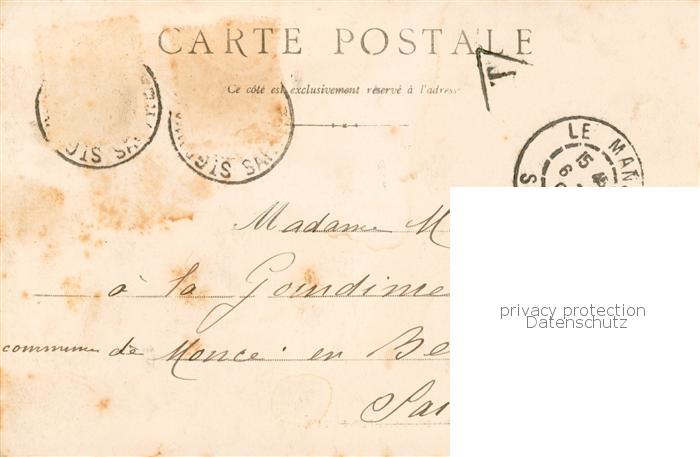 CARTE POSTALE
T
Ce côté est exclusivement réservé à l'adresse
LE MANS
15
6
S
Madame M
à la Goudine
commune de Moncé en Be
Sar
privacy protection
Datenschutz